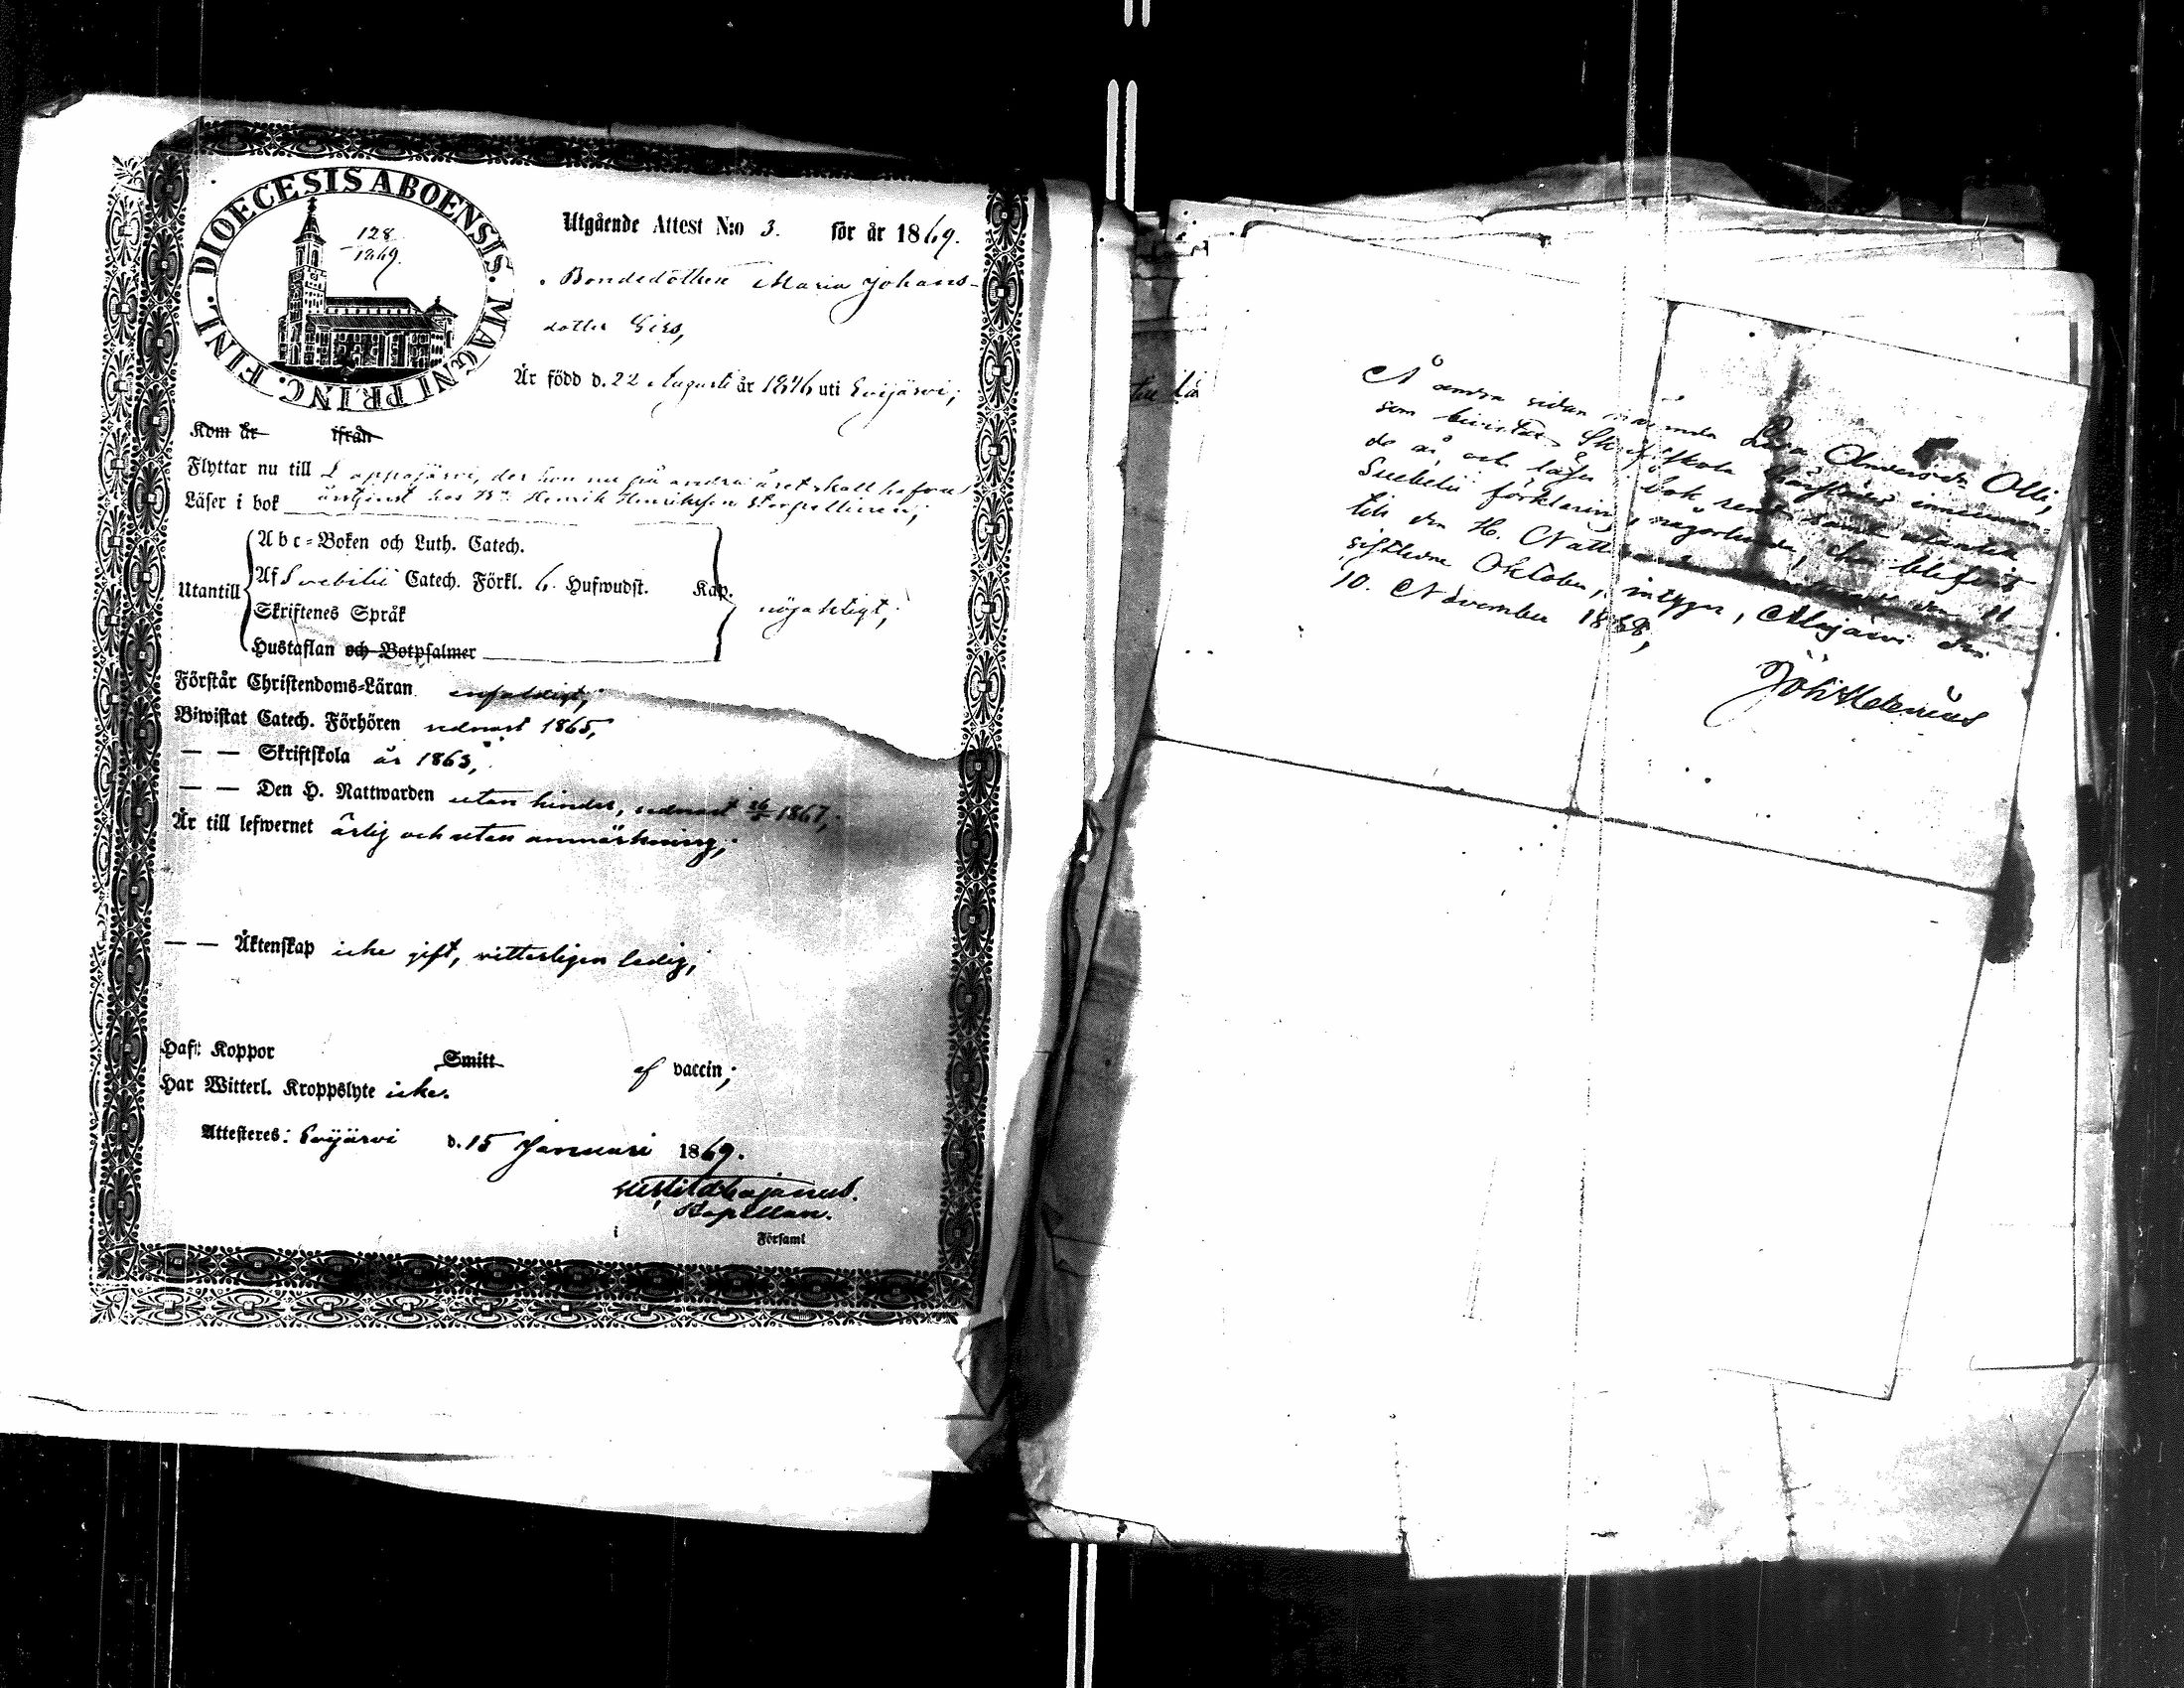 DIOECESIS ABOENSIS. MAGNI PRINC. FINL.
128
1869.
Utgående Attest N:o 3. för år 1869.
Bondedottren Maria Johans-
dotter
Är född d. 22 Augusti år 1846 uti Evijärvi;
Kom år ifrån
Flyttar nu till Lappajärvi, der hon nu på andra året skall hafva
Läser i bok årstjenst hos Henrik Henriksson
Utantill
Abc-Boken och Luth. Catech.
Af Svebilii Catech. Förkl. 6. Hufwudst. Kap.
nöjaktigt;
Skriftenes Språk
Hustaflan och Botpsalmer
Förstår Christendoms-Läran enfaldigt;
Biwistat Catech. Förhören sednast 1865;
— — Skriftskola år 1863;
— — Den H. Nattwarden utan hinder, sednast 1867;
Är till lefwernet ärlig och utan anmärkning;
— — Äktenskap icke gift, vitterligen ledig;
Haft Koppor Smitt af vaccin;
Har Witterl. Kroppslyte icke.
Attesteres: Evijärvi d. 15 Januari 1869.
Cajanus.
Kapellan.
i Församl
Å andra sidan nämnda Lisa Olli,
som bivistat Skriftskola innevaran-
de år och läser i bok rent samt utantill
Svebelii förklaring någorlunda, har blifvit
till den H. Nattvard den 11
sistledne Oktober, intygar, Alajärvi den
10. November 1868,
Joh